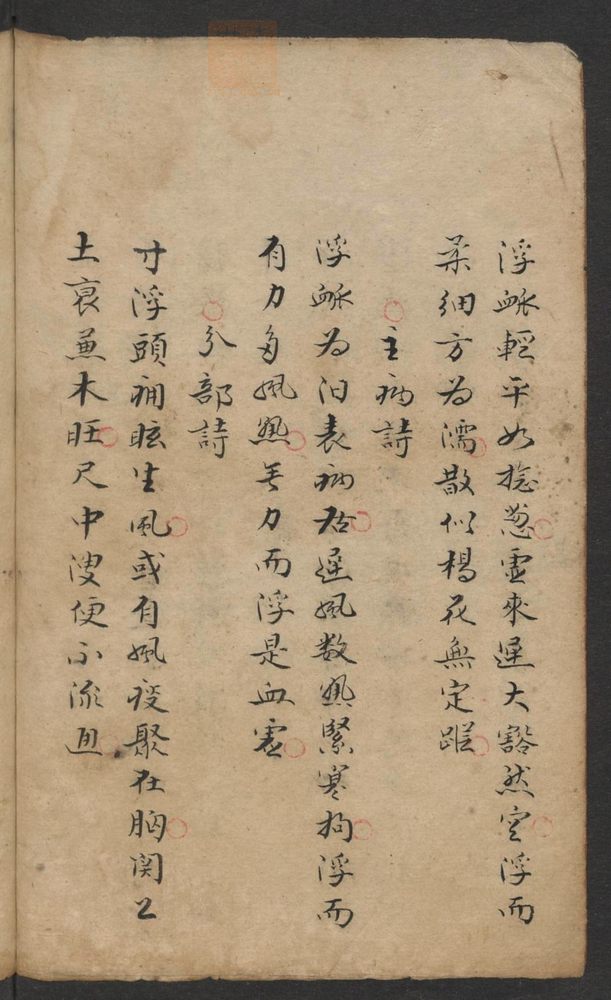 浮脉輕平如捻葱虛來遲大豁然空浮而
柔細方为濡散似楊花無定蹤
主病詩
浮脉为阳表病居遲風数熱緊寒拘浮而
有力多風熱無力而浮是血虛
分部詩
寸浮頭痛眩生風或有風痰聚在胸関上
土衰兼木旺尺中溲便不流通